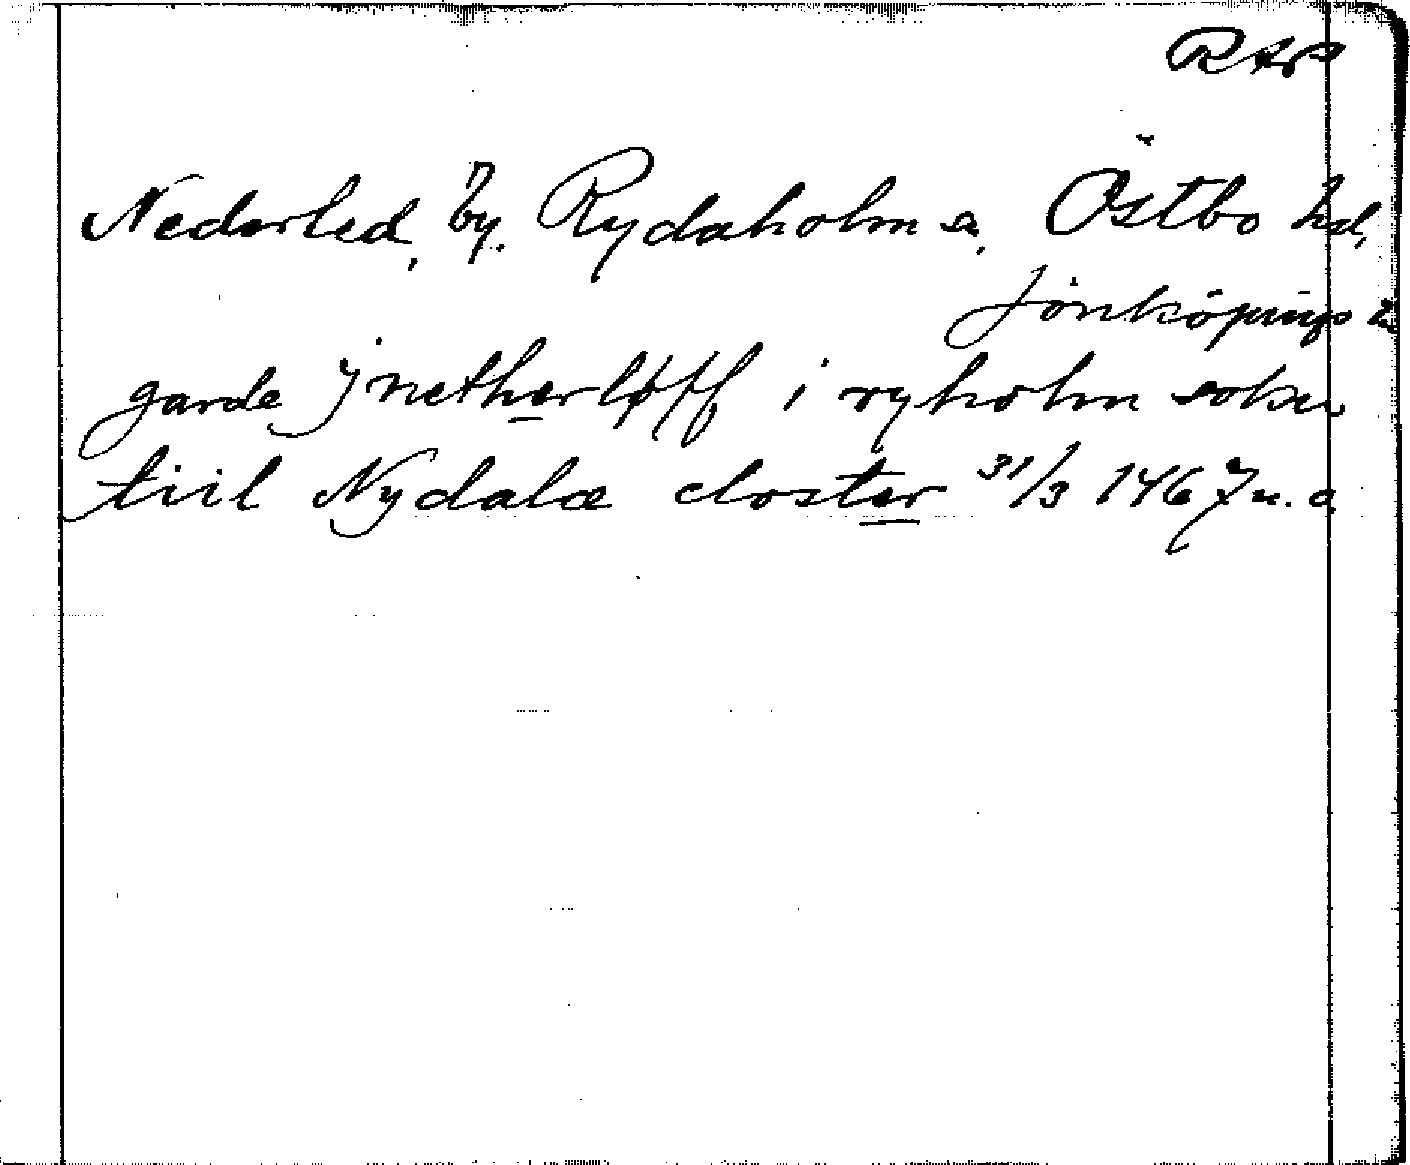 RAP
Nederled, by. Rydaholm s. Östbo hd,
Jönköpings l.
garde j netherløff i ryholm sokn
tiil Nydala closter 31/3 1467 u. a